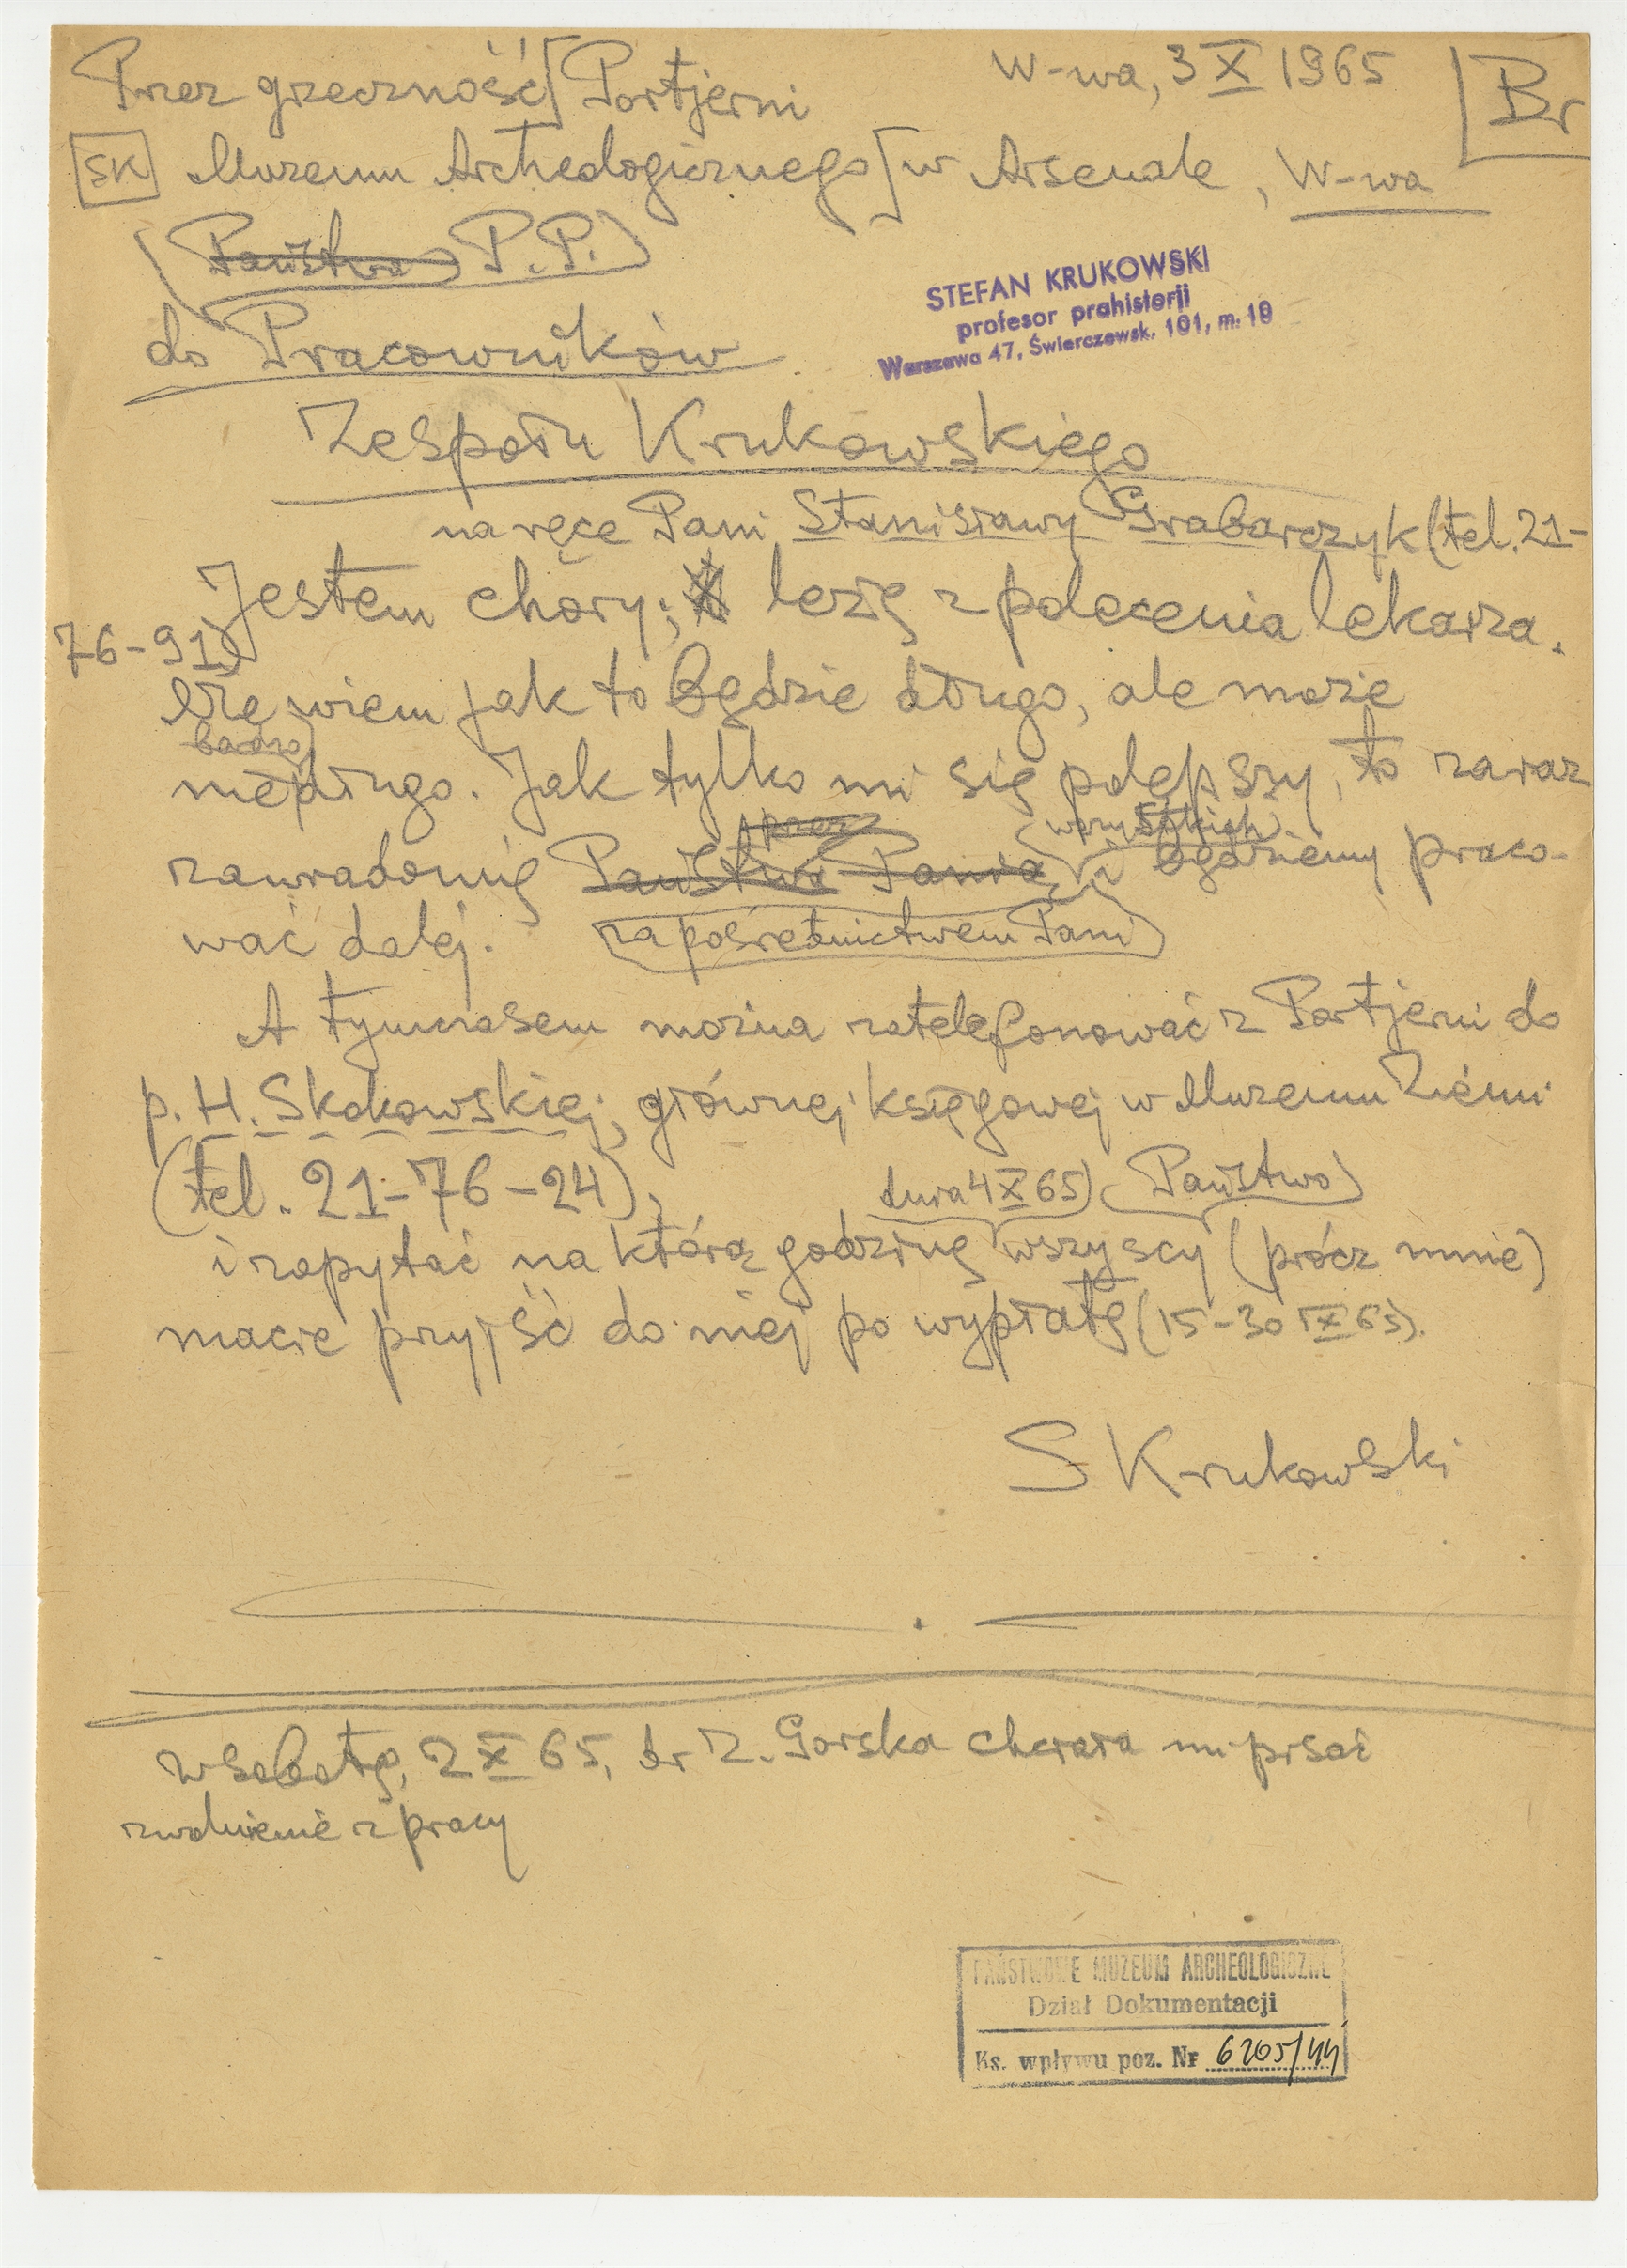 W-wa, 3 X 1965
Br
Przez grzeczność Portjerni
SK Muzeum Archeologicznego w Arsenale, W-wa
Państwa P.P.
do Pracowników
STEFAN KRUKOWSKI
profesor prahistorji
Warszawa 47, Świerczewsk. 101, m. 10
Zespołu Krukowskiego
na ręce Pani Stanisławy Grabarczyk (tel. 21-
76-91)
Jestem chory; leżę z polecenia lekarza.
Nie wiem jak to będzie długo, ale może
bardzo
niedługo. Jak tylko mi się polepszy, to zaraz
przez wszystkich
zawiadomię Państwa Pania i będziemy praco-
wać dalej. za pośrednictwem Pani
A tymczasem można zatelefonować z Portjerni do
p. H. Skokowskiej, głównej księgowej w Muzeum Ziemi
(tel. 21-76-24),
dnia 4 X 65) Państwo
i zapytać na którą godzinę wszyscy (prócz mnie)
macie przyjść do niej po wypłatę (15-30 IX 65).
S Krukowski
W sobotę, 2 X 65, dr Z. Gorska chciała mi pisać
zwolnienie z pracy
PAŃSTWOWE MUZEUM ARCHEOLOGICZNE
Dział Dokumentacji
Ks. wpływu poz. Nr 6205/44